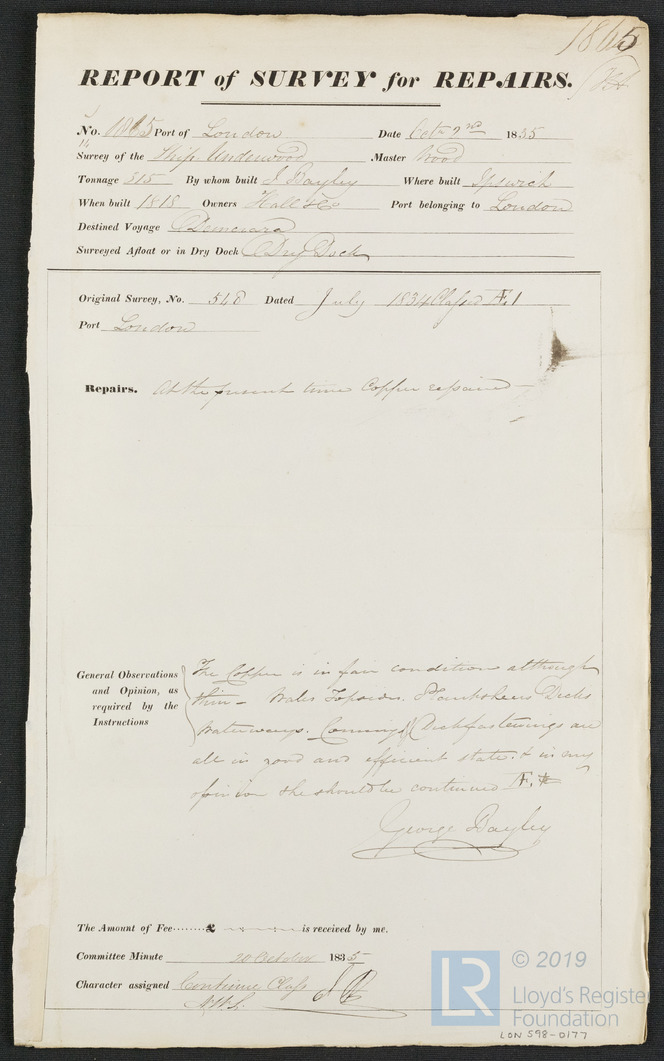 1865
REPORT of SURVEY for REPAIRS.
No. 1865 Port of London Date Oct 2nd 1835
Survey of the Ship Underwood Master Wood
Tonnage 315 By whom built J Bayley Where built Ipswich
When built 1818 Owners Hall & Co Port belonging to London
Destined Voyage Demerara
Surveyed Afloat or in Dry Dock Dry Dock
Original Survey, No. 548 Dated July 1834 Classed Æ.1
Port London
Repairs. At the present time Copper repaired
General Observations and Opinion, as required by the Instructions
The Copper is in fair condition although
thin - Wales Topsides. Plankshears Decks
Waterways. Comings & Deckfastenings are
all in good and efficient state. & in my
opinion she should be continued Æ.
George Bayley
The Amount of Fee........£ is received by me.
Committee Minute 20 October 1835
Character assigned Continue Class
© 2019
LR
Lloyd's Register
Foundation
LON 598-0177